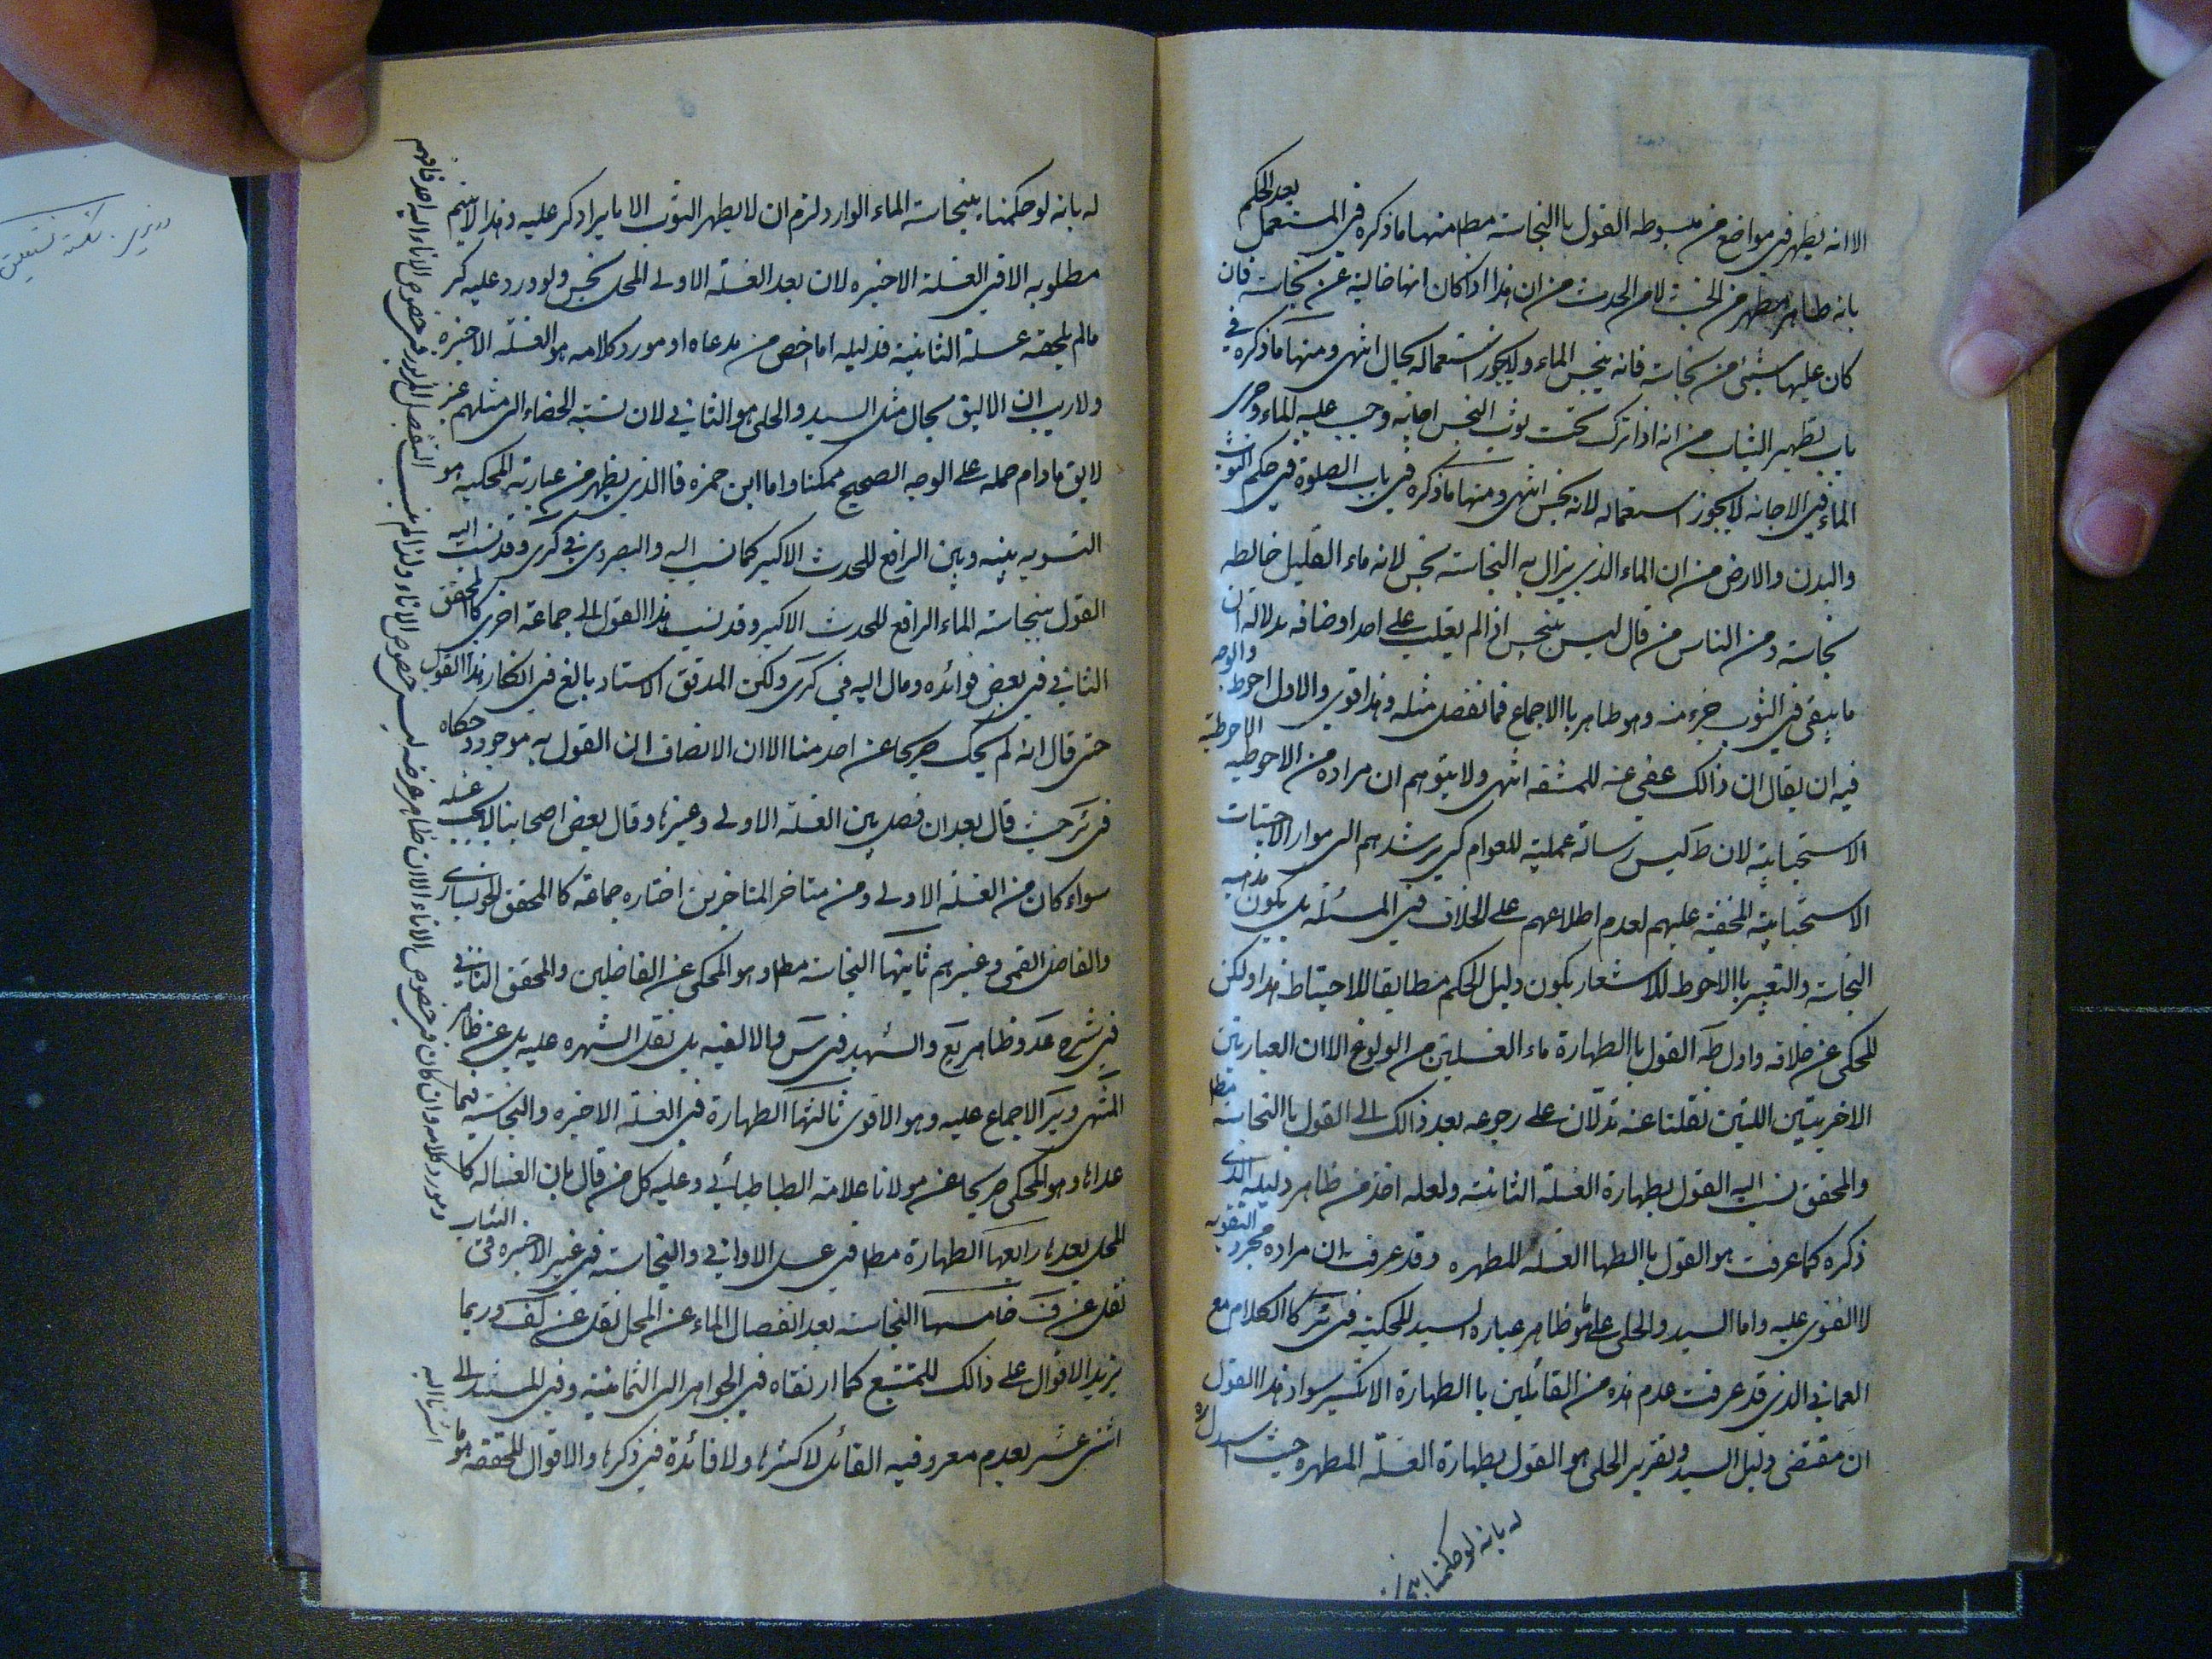 الا انه يظهر في مواضع من مبسوطه القول باالنجاسة مطا منها ما ذكره في المستعمل بعد الحكم
بانه طاهر مطهر من الخبث لا من الحدث من ان هذا اذا كان انها خالية عن نجاسة فان
كان عليها شيئ من نجاسة فانه ينجس الماء ولا يجوز استعماله بحال انتهى ومنها ما ذكره في
باب تطهير الثياب من انه اذا ترك تحت ثوب النجس اجانه وصب عليه الماء وجرى
الماء في الاجانه لا يجوز استعماله لانه نجس انتهى ومنها ما ذكره في باب الصلوة في حكم الثوب
والبدن والارض من ان الماء الذي يزال به النجاسة نجس لانه ماء القليل خالطه
نجاسة ومن الناس من قال ليس بنجس اذا لم يغلب على احد اوصافه بدلالة ان
ما يبقى في الثوب جزء منه وهو طاهر باالاجماع فما انفصل مثله وهذا قوى والاول احوط والوجه
فيه ان يقال ان ذالك عفى عنه للمشقه انتهى ولا يتوهم ان مراده من الاحوطيه الاحوطية
الاستحبابية لان ط ليس رسالة عملية للعوام كى يرشدهم الى موارد الاحتياط
الاستحبابية المخفية عليهم لعدم اطلاعهم على الخلاف في المسئلة بل يكون مذهبه
النجاسة والتعبير باالاحوط للاشعار بكون دليل الحكم مطابقا للاحتياط هذا ولكن
المحكى عن خلافه واول ط القول باالطهارة ماء الغسلتين من الولوغ الا ان العبارتين
الاخريتين اللتين نقلنا عنه تدلان على رجوعه بعد ذالك الى القول باالنجاسة مطا
والمحقق نسب اليه القول بطهارة الغسلة الثانية ولعله اخذ من ظاهر دليله الذى
ذكره كما عرفت هو القول باالطها الغسلة المطهره وقد عرفت ان مراده مجرد التقويه
لا الفتوى عليه واما السيد والحلى على ما هو ظاهر عبارة السيد المحكية في ئر كا الكلام مع
العماني الذى قد عرفت عدم هذه من القائلين باالطهارة الا ... هذا القول
ان مقتضى دليل السيد وتقرير الحلى هو القول بطهارة الغسلة المطهره حيث استدل
له بانه لو حكمنا بنجا
له بانه لو حكمنا بنجاسة الماء الوارد لزم ان لا يطهر الثوب الا بايراد كر عليه وهذا لا ينتج
مطلوبه الا في الغسلة الاخيره لان بعد الغسلة الاولى المحل نجس ولو ورد عليه كر
مالم يلحقه غسلة الثانية فدليله اما اخص من مدعاه او مورد كلامه هو الغسلة الاخيرة
ولا ريب ان الاليق بحال مثل السيد والحلى هو الثاني لان نسبة الخطاء الى مثلهم غير
لايق مادام حمله على الوجه الصحيح ممكنا واما ابن حمزه فا الذى يظهر من عبارته المحكية هو
التسويه بينه وبين الرافع للحدث الاكبر كما نسب اليه والبصروى في كرى وقد نسب اليه
القول بنجاسة الماء الرافع للحدث الاكبر وقد نسب هذا القول الى جماعة اخرى كا المحقق
الثاني في بعض فوائده ومال اليه في كرى ولكن المدقق الاستاد بالغ في انكار هذا القول
حتى قال انه لم يحك صريحا عن احد منا الا ان الانصاف ان القول به موجود وحكاه
في ئر حيث قال بعد ان فصل بين الغسلة الاولى وغيرها وقال بعض اصحابنا لا يجب غسله
سواء كان من الغسلة الاولى ومن متاخر المتاخرين اختاره جماعة كا المحقق الخونسارى
والفاضل القمى وغيرهم ثانيها النجاسة مطا وهو المحكى عن الفاضلين والمحقق الثاني
في شرح عد وظاهر يع والشهيد في س والالفيه بل نقل الشهره عليه بل عن ظاهر
المنتهى وير الاجماع عليه وهو الاقوى ثالثها الطهارة في الغسلة الاخيره والنجاسة فيما
عداها وهو المحكى صريحا عن مولانا علامة الطباطبائي وعليه كل من قال بان الغساله كا
المحل بعدها رابعها الطهارة مطا في غسل الاواني والنجاسة في غير الاخيره في الثياب
نقل عن ف خامسها النجاسة بعد انفصال الماء عن المحل نقل عن كف وربما
يزيد الاقوال على ذالك للمتتبع كما ارتقاه في الجواهر الى الثمانية وفي المستند الى
اثنى عشر بعدم معروفيه القائل لاكثرها ولا فائدة في ذكرها والاقوال المحققه هو ما
اشرنا اليه
ومورد كلامه وان كان في خصوص الاناء الا ان ظاهر غرضه ليس خصوص الاناء ولذا لم ينسب التفصيل المزبور في خصوص الاناء اليه احد فافهم